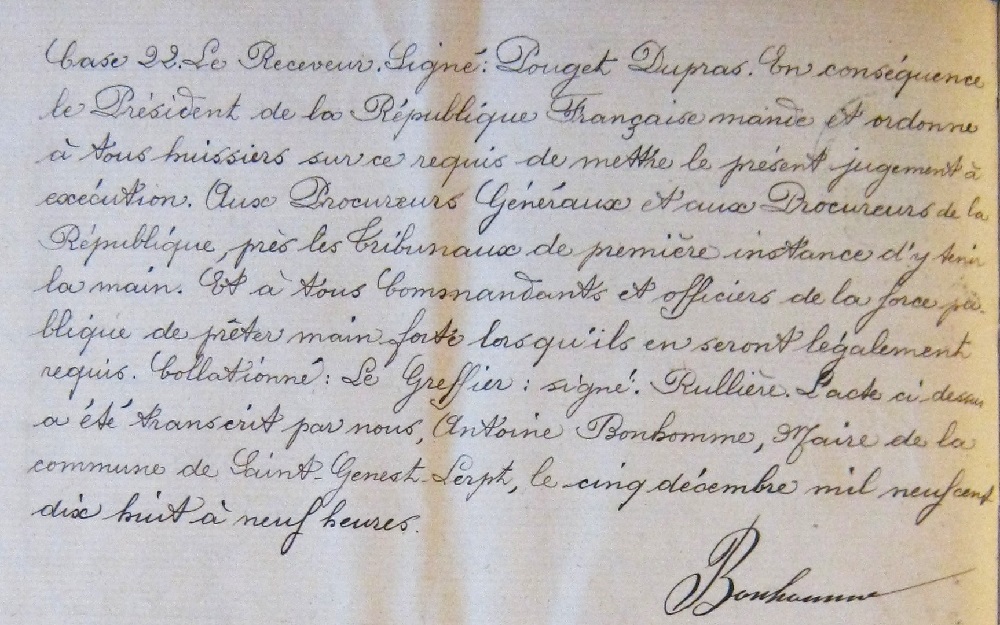 Case 22. Le Receveur. Signé: Pouget Dupras. En conséquence
le Président de la République Française mande et ordonne
à tous huissiers sur ce requis de mettre le présent jugement à
exécution. Aux Procureurs Généraux et aux Procureurs de la
République, près les Tribunaux de première instance d'y tenir
la main. Et à tous Commandants et officiers de la force pu-
blique de prêter main forte lorsqu'ils en seront légalement
requis. Collationné: Le Greffier: signé: Rullière. L'acte ci dessus
a été transcrit par nous, Antoine Bonhomme, Maire de la
commune de Saint-Genest-Lerpt, le cinq décembre mil neuf cent
dix huit à neuf heures.
Bonhomme